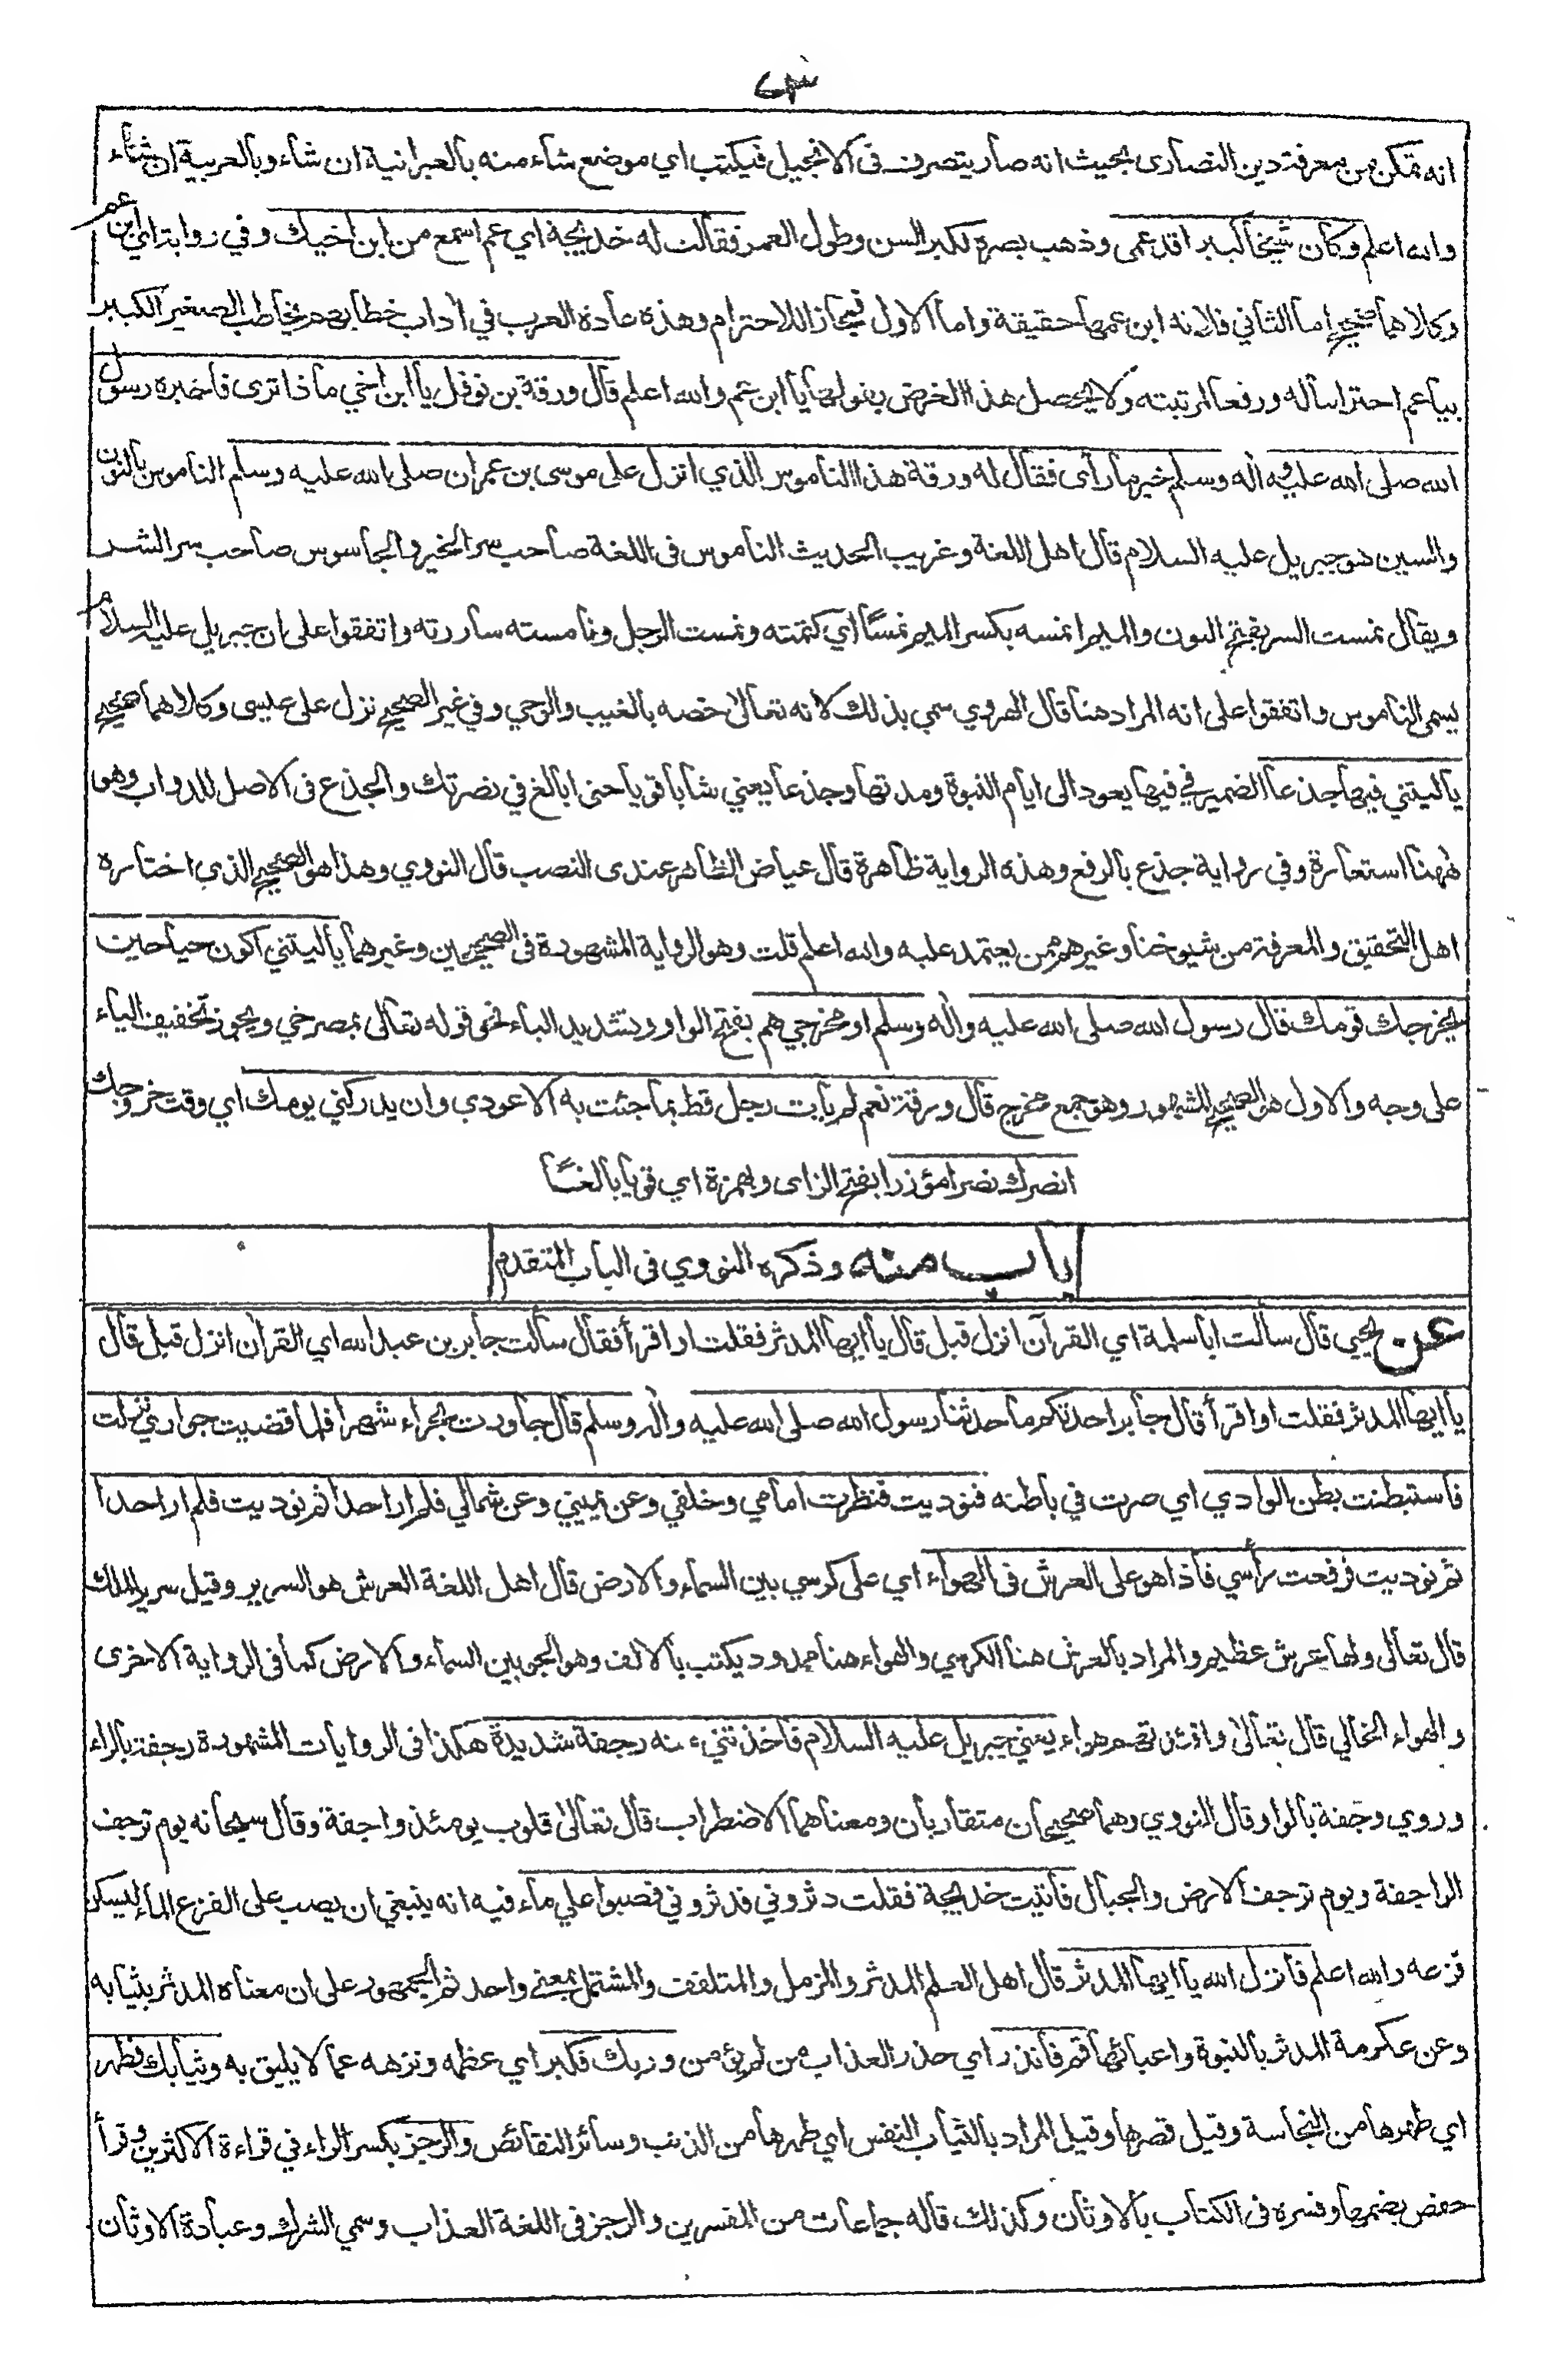 انه تمكن من معرفة دين النصارى بحيث انه صار يتصرف فى الانجيل فيكتب اي موضع شاء منه بالعبرانية ان شاء وبالعربية ان شاء
والله اعلم وكان شيخا كبيرا قد عمى وذهب بصره لكبر السن وطول العمر فقالت له خديجة اي عم اسمع من ابن اخيك وفي رواية اي ابن عم
وكلاهما صحيح اما الثاني فلانه ابن عمها حقيقة واما الاول فمجاز اللاحترام وهذه عادة العرب في اداب خطابهم يخاطب الصغير الكبير
بيا عم احتراما له ورفعا لمرتبته ولا يحصل هذا الغرض بقولها يا ابن عم والله اعلم قال ورقة بن نوفل يا ابن اخي ماذا ترى فاخبره رسول
الله صلى الله عليه وآله وسلم خبر ما رأى فقال له ورقة هذا الناموس الذي انزل على موسى بن عمران صلى الله عليه وسلم الناموس بالنون
والسين هو جبريل عليه السلام قال اهل اللغة وغريب الحديث الناموس فى اللغة صاحب سر الخير والجاسوس صاحب سر الشر
ويقال نمست السر بفتح النون والميم انمسه بكسر الميم نمسًا اي كتمته ونمست الرجل ونامسته ساررته واتفقوا على ان جبريل عليه السلام
يسمى الناموس واتفقوا على انه المراد هنا قال الهروي سمي بذلك لانه تعالى خصه بالغيب والوحي وفي غير الصحيح نزل على عيسى وكلاهما صحيح
يا ليتني فيها جذعا الضمير في فيها يعود الى ايام النبوة ومدتها وجذعا يعني شابا قويا حتى ابالغ في نصرتك والجذع فى الاصل للدواب وهو
ههنا استعارة وفي رواية جذع بالرفع وهذه الرواية ظاهرة قال عياض الظاهر عندى النصب قال النووي وهذا هو الصحيح الذي اختاره
اهل التحقيق والمعرفة من شيوخنا وغيرهم ممن يعتمد عليه والله اعلم قلت وهو الرواية المشهورة فى الصحيحين وغيرهما يا ليتني اكون حيا حين
يخرجك قومك قال رسول الله صلى الله عليه وآله وسلم او مخرجي هم بفتح الواو وتشديد الياء نحو قوله تعالى بمصرخي ويجوز تخفيف الياء
على وجه والاول هو الصحيح المشهور وهو جمع مخرج قال ورقة نعم لم يأت رجل قط بما جئت به الا عودي وان يدركني يومك اي وقت خروجك
انصرك نصرا مؤزرا بفتح الزاى وبهمزة اي قويا بالغًا
باب منه وذكره النووي فى الباب المتقدم
عن يحيي قال سألت ابا سلمة اي القرآن انزل قبل قال يا ايها المدثر فقلت او اقرأ فقال سألت جابر بن عبد الله اي القرآن انزل قبل قال
يا ايها المدثر فقلت او اقرأ قال جابر احدثكم ما حدثنا رسول الله صلى الله عليه وآله وسلم قال جاورت بحراء شهرا فلما قضيت جواري نزلت
فاستبطنت بطن الوادي اي صرت في باطنه فنوديت فنظرت امامي وخلفي وعن يميني وعن شمالي فلم ار احدا ثم نوديت فلم ار احدا
ثم نوديت فرفعت رأسي فاذا هو على العرش فى الهواء اي على كرسي بين السماء والارض قال اهل اللغة العرش هو السرير وقيل سرير الملك
قال تعالى ولها عرش عظيم والمراد بالعرش هنا الكرسي والهواء هنا ممدود يكتب بالالف وهو الجو بين السماء والارض كما فى الرواية الاخرى
والهواء الخالي قال تعالى وافئدتهم هواء يعني جبريل عليه السلام فاخذتني منه رجفة شديدة هكذا فى الروايات المشهورة رجفة بالراء
وروي وجفة بالواو قال النووي وهما صحيحان متقاربان ومعناهما الاضطراب قال تعالى قلوب يومئذ واجفة وقال سبحانه يوم ترجف
الراجفة ويوم ترجف الارض والجبال فاتيت خديجة فقلت دثروني فدثروني فصبوا علي ماء فيه انه ينبغي ان يصب على الفزع الماء ليسكن
فزعه والله اعلم فانزل الله يا ايها المدثر قال اهل العلم المدثر والمزمل والمتلفف والمشتمل بمعنى واحد ثم الجمهور على ان معناه المدثر بثيابه
وعن عكرمة المدثر بالنبوة واعبائها قم فانذر اي حذر العذاب من لم يؤمن وربك فكبر اي عظمه ونزهه عما لا يليق به وثيابك فطهر
اي طهرها من النجاسة وقيل قصرها وقيل المراد بالثياب النفس اي طهرها من الذنب وسائر النقائص والرجز بكسر الراء في قراءة الاكثرين وقرأ
حفص بضمها وفسره فى الكتاب بالاوثان وكذلك قاله جماعات من المفسرين والرجز فى اللغة العذاب وسمي الشرك وعبادة الاوثان